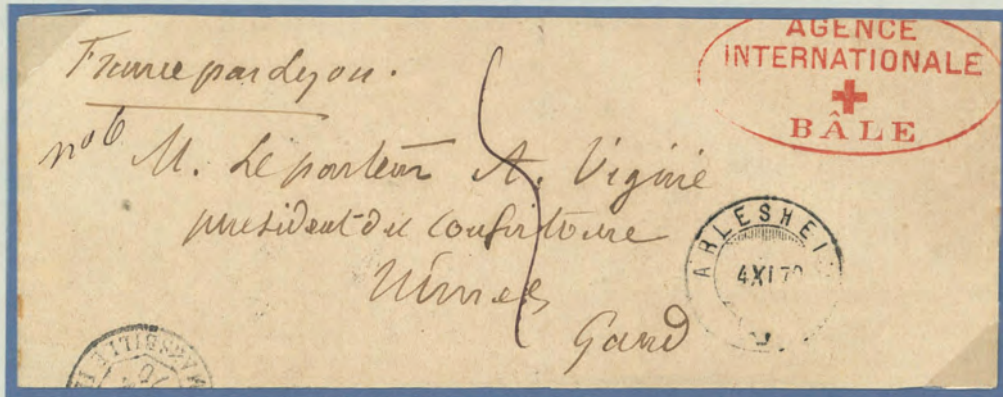 AGENCE
INTERNATIONALE
BÂLE
France par Lyon.
nº 6
M. Le pasteur A. Viguié
président du Consistoire
Nimes
Gard
ARLESHEI
4 XI 70
MARSEILLE
70